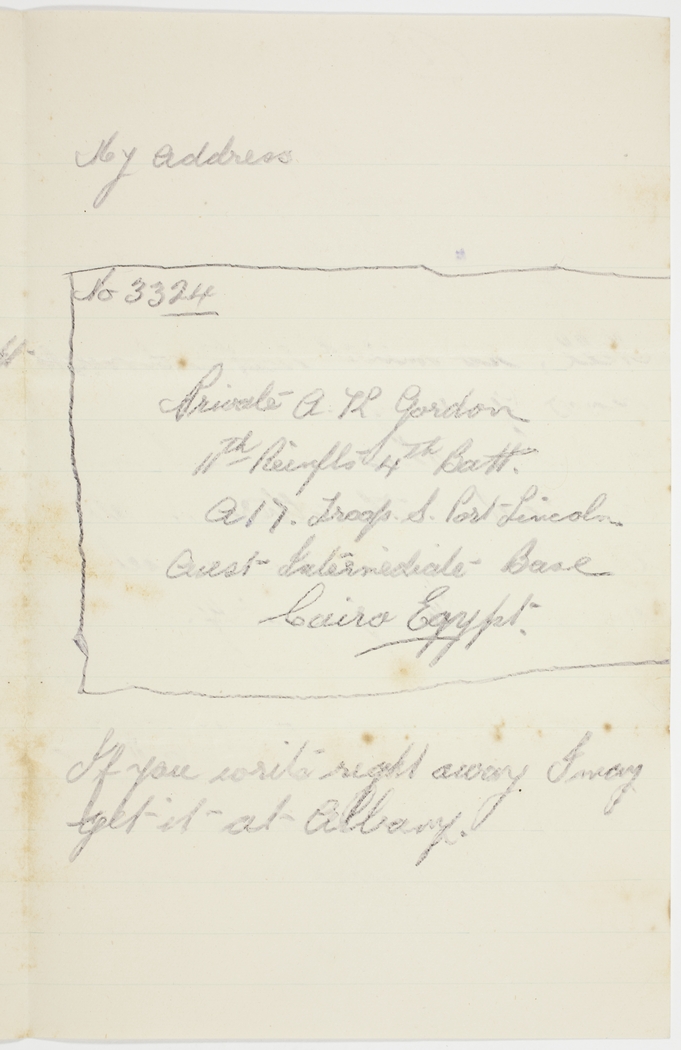 My address
No 3324
Private A R Gordon
11th Reinfts 4th Batt.
A17. Troop. S. Port Lincoln
Aust Intermediate Base
Cairo Egypt.
If you write right away I may
get it at Albany.